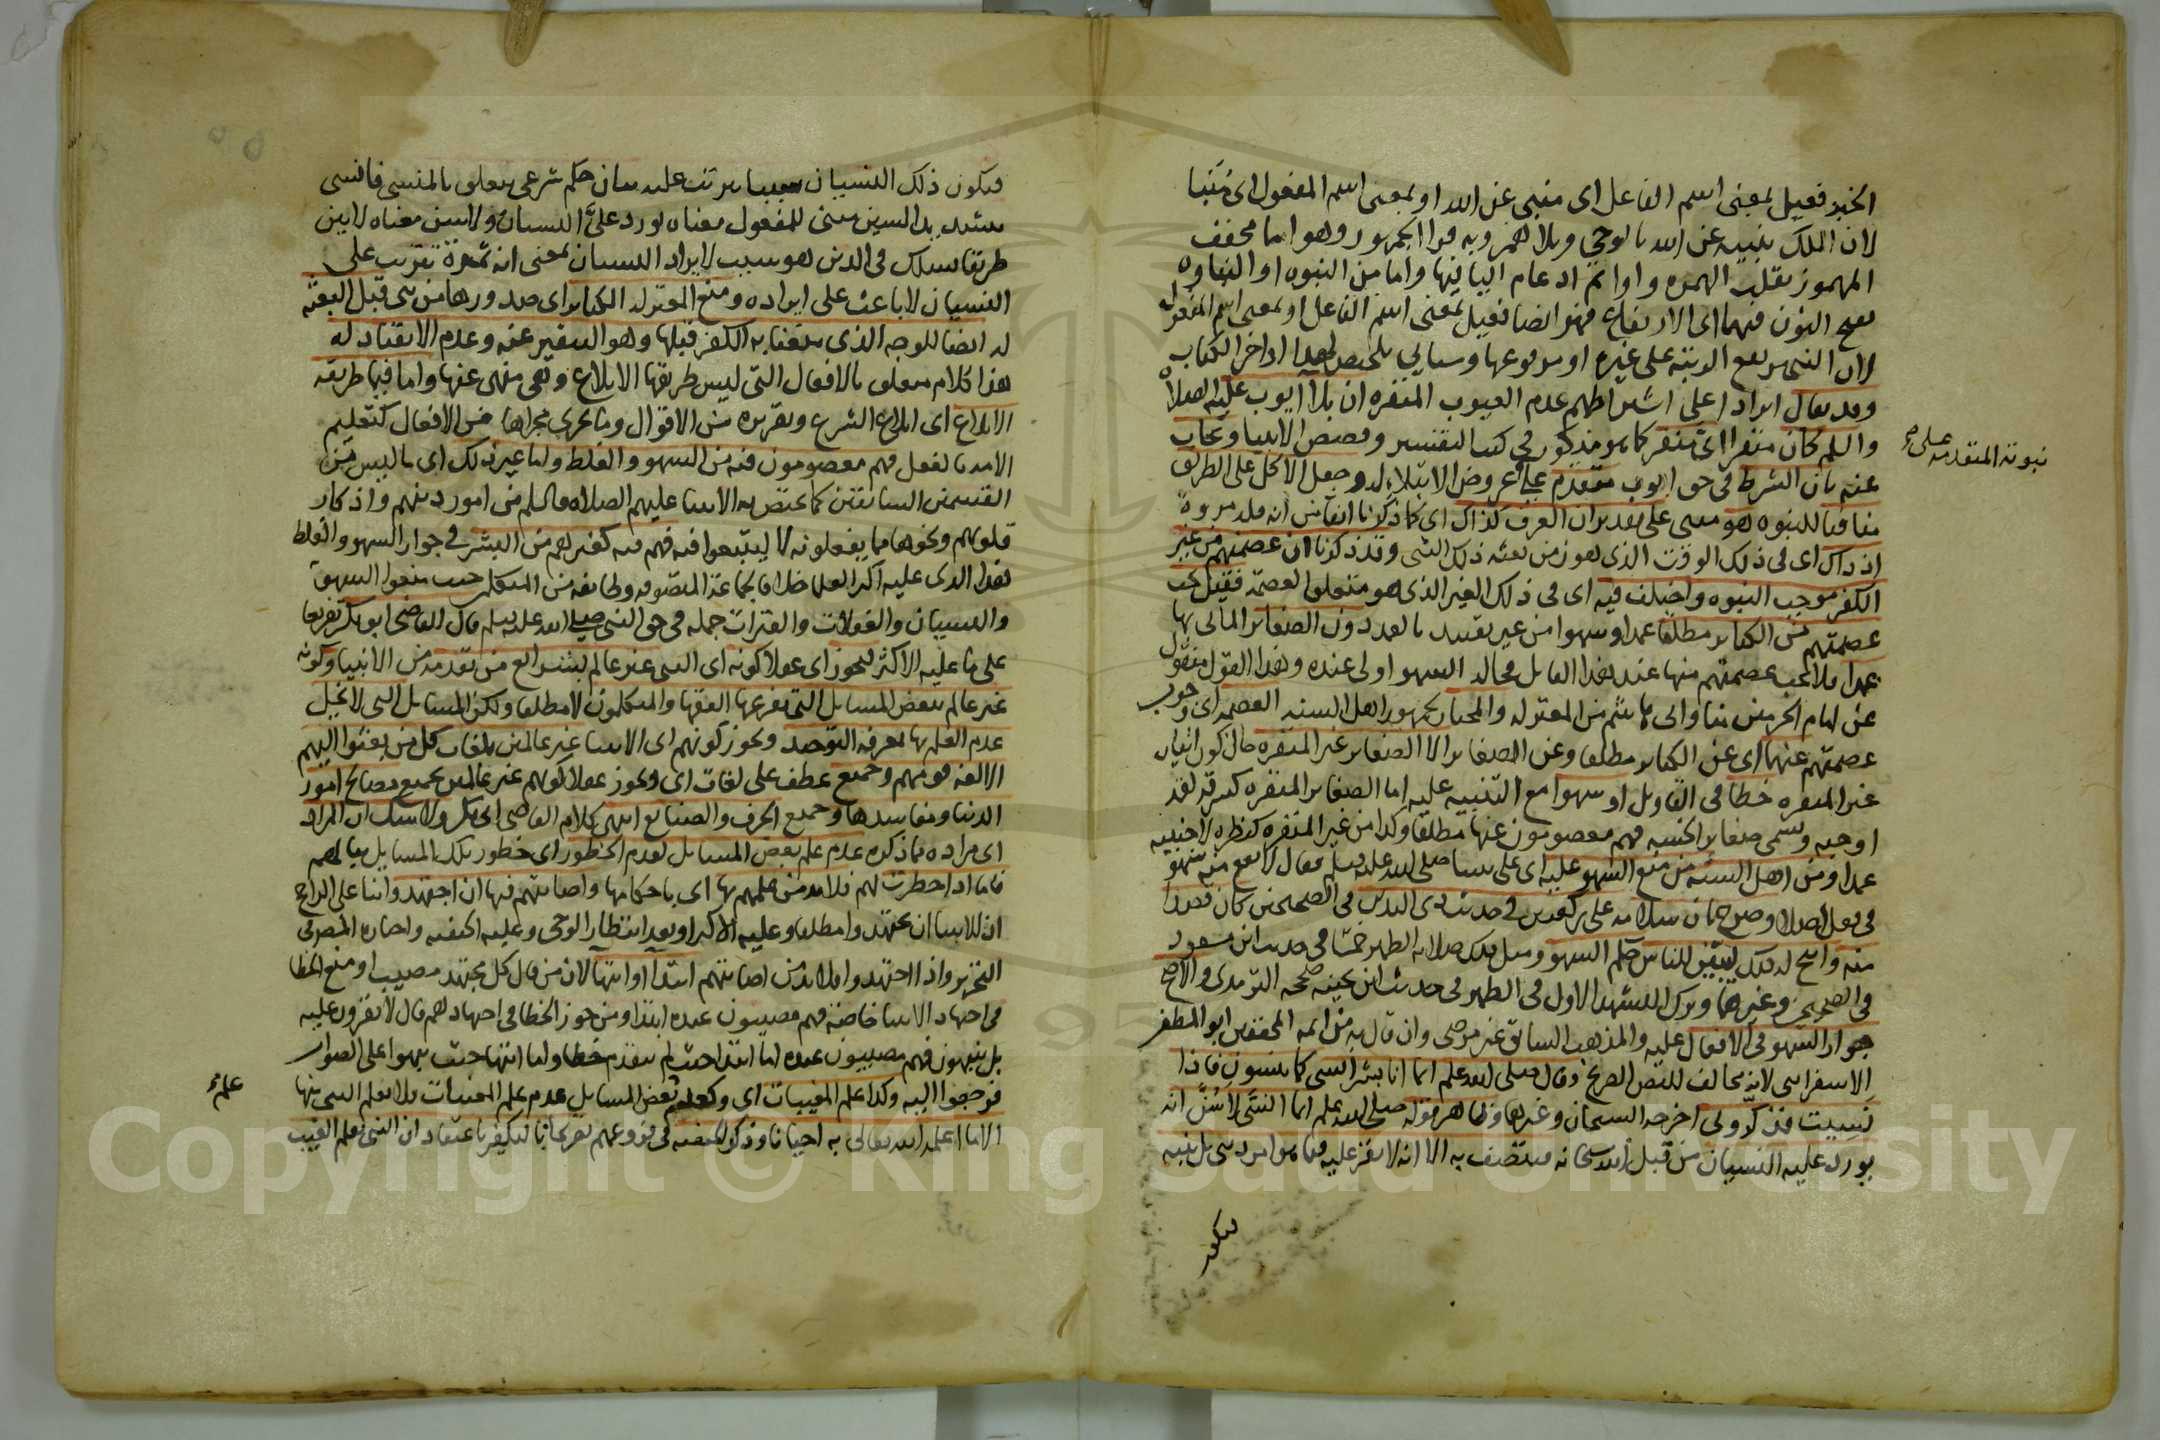 الخبر فعيل بمعنى اسم الفاعل اى منبى عن الله او بمعنى اسم المفعول اى منبا
لان الملك ينبيه عن الله بالوحي وبلا همز وبه قرا الجمهور وهو اما مخفف
المهموز بقلب الهمزه واوا ثم ادغام اليا فيها واما من النبوه او النباوه
بفتح النون فيهما اى الارتفاع فهو ايضا فعيل بمعنى اسم الفاعل او بمعنى اسم المفعول
لان النبى مرتفع الرتبه على غيره او مرفوعها وسياتي تلخيص لهذا اواخر الكتاب
وقد يقال ايرادا على اشتراطهم عدم العيوب المنفره ان بلاا ايوب عليه الصلاة
والسلم كان منفرا اى منفر كما هو مذكور في كتب التفسير وقصص الانبيا ويجاب
عنه بان الشرط في حق ايوب متقدم على عروض الابتلاء له وجعل الاكل على الطريق
نبوته المتقدمه على
منافيا للنبوه هو مبنى على تقدير ان العرف كذاك اى كما ذكرنا انفا من انه قله مروة
اذ ذاك اى في ذلك الوقت الذى هو زمن بعثه ذلك النبى وقد ذكرنا ان عصمتهم من غير
الكفر موجب النبوه واختلف فيه اى في ذلك الغير الذى هو متعلق العصمة فقيل تجب
عصمتهم من الكباير مطلقا عمدا وسهوا من غير تقييد بالعمد دون الصغاير الماتى بها
عمدا فلا تجب عصمتهم منها عند هذا القايل فحاله السهو اولى عنده وهذا القول منقول
عن امام الحرمين منا وابى هاشم من المعتزله والمختار لجمهور اهل السنه العصمه اى وجوب
عصمتهم عنها اى عن الكباير مطلقا وعن الصغاير الا الصغاير غير المنفره حال كون اتيان
غير المنفره خطا في التاويل او سهوا مع التنبيه عليه اما الصغاير المنفره كسرقه لقمه
او حبه وتسمى صغاير الخسه فهم معصومون عنها مطلقا وكذا من غير المنفره كنظره لاجنبيه
عمدا ومن اهل السنه من منع السهو عليه اى على نبينا صلى الله عليه وسلم فقال لا يقع منه سهو
في فعل اصلا وصرح بان سلامه على ركعتين في حديث ذى اليدين في الصحيحين كان قصدا
منه وابيح له ذلك ليبين للناس حكم السهو ومثل ذلك صلاته الظهر خمسا في حديث ابن مسعود
في الصحيحين وغيرهما وترك التشهد الاول في الظهر في حديث ابن بحينه صححه الترمذى والاصح
جواز السهو في الافعال عليه والمذهب السابق غير مرضى وان قال به من ايمه المحققين ابو المظفر
الاسفراينى لانه مخالف للنص الصريح وقال صلى الله عليه وسلم انما انا بشر انسى كما تنسون فاذا
نسيت فذكرونى اخرجه الشيخان وغيرهما وظاهر قوله صلى الله عليه وسلم انما انسى لاسن انه
يورد عليه النسيان من قبل الله سبحانه فيتصف به الا انه لا يقر عليه فيما هو امر دينى بل ينبه
فيكون
فيكون ذلك النسيان سببا يترتب عليه بيان حكم شرعى يتعلق بالمنسى فانسى
بتشديد السين مبنى للمفعول معناه يورد علىّ النسيان ولاسن معناه لابين
طريقا يسلك في الدين هو سبب لايراد النسيان بمعنى انه ثمرة تترتب على
النسيان لا باعث على ايراده ومنع المعتزله الكباير اى صدورها من نبى قبل البعثه
له ايضا للوجه الذى منعنا به الكفر قبلها وهو التنفير عنه وعدم الانقياد له
هذا كلام متعلق بالافعال التى ليس طريقها الابلاغ وهى منهى عنها واما فيما طريقه
الابلاغ اى ابلاغ الشرع وتقريره من الاقوال وما يجرى مجراها من الافعال كتعليم
الامه بالفعل فهم معصومون فيه من السهو والغلط واما غير ذلك اى ما ليس من
القسمين السابقين كما يختص به الانبيا عليهم الصلاه والسلم من امور دينهم واذكار
قلوبهم ونحوها مما يفعلونه لا ليتبعوا فيه فهم فيه كغيرهم من البشر في جواز السهو والغلط
هذا الذى عليه اكثر العلما خلافا لجماعة المتصوفه وطايفه من المتكلمين حيث منعوا السهو
والنسيان والغفلات والفترات جمله في حق النبى صلى الله عليه وسلم قال القاضى ابو بكر تفريعا
على ما عليه الاكثر يجوز اى عقلا كونه اى النبى غير عالم بشرايع من تقدمه من الانبيا وكونه
غير عالم ببعض المسايل التى يفرعها الفقها والمتكلمون لا مطلقا ولكن المسايل التى لا يخل
عدم العلم بها لمعرفه التوحيد ويجوز كونهم اى الانبيا غير عالمين بلغات كل من بعثوا اليهم
الا لغه قومهم وجميع عطف على لغات اى ويجوز عقلا كونهم غير عالمين بجميع مصالح امور
الدنيا ومفاسدها وجميع الحرف والصنايع انتهى كلام القاضى ابى بكر ولا شك ان المراد
اى مراده بما ذكره عدم علم بعض المسايل لعدم الخطور اى خطور تلك المسايل ببالهم
فاما اذا خطرت لهم فلا بد من علمهم بها اى باحكامها واصابتهم فيها ان اجتهدوا بنا على الراجح
ان للانبيا ان يجتهدوا مطلقا وعليه الاكثر او بعد انتظار الوحى وعليه الحنفيه واختاره المصنف في
التحرير واذا اجتهدوا فلا بد من اصابتهم ابتدا او انتها لان من قال كل مجتهد مصيب او منع الخطا
في اجتهاد الانبيا خاصة فهم مصيبون عنده ابتدا ومن جوز الخطا في اجتهادهم قال لا يقرون عليه
بل ينبهون فهم مصيبون عنده اما ابتدا حيث لم يتقدم خطا واما انتها حيث نبهوا على الصواب
فرجعوا اليه وكذا علم المغيبات اى وكعدم علم بعض المسايل عدم علم المغيبات فلا يعلم النبى منها
علم
الا ما اعلمه الله تعالى به احيانا وذكر الحنفيه في فروعهم تصريحا بالتكفير باعتقاد ان النبى يعلم الغيب
Copyright © King Saud University